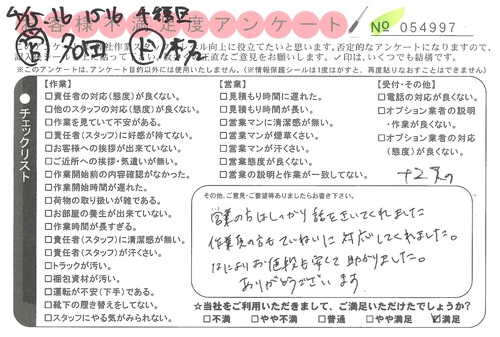 お客様不満足度アンケート
№ 054997
※このアンケートは、アンケート目的以外には使用いたしません。(※情報保護シールは1度はがすと、再度貼りなおすことはできません)
チェックリスト
【作業】
□責任者の対応(態度)が良くない。
□他のスタッフの対応(態度)が良くない。
□作業を見ていて不安がある。
□責任者(スタッフ)に好感が持てない。
□お客様への挨拶が出来ていない。
□ご近所への挨拶・気遣いが無い。
□作業開始前の内容確認がなかった。
□作業開始時間が遅れた。
□荷物の取り扱いが雑である。
□お部屋の養生が出来ていない。
□作業時間が長すぎる。
□責任者(スタッフ)に清潔感が無い。
□責任者(スタッフ)が汗くさい。
□トラックが汚い。
□梱包資材が汚い。
□運転が不安(下手)である。
□靴下の履き替えをしてない。
□スタッフにやる気がみられない。
【営業】
□見積もり時間に遅れた。
□見積もり時間が長い。
□営業マンに清潔感が無い。
□営業マンが煙草くさい。
□営業マンが汗くさい。
□営業態度が良くない。
□営業の説明と作業が一致してない。
【受付・その他】
□電話の対応が良くない。
□オプション業者の説明
・作業が良くない。
□オプション業者の対応
(態度)が良くない。
その他、ご意見・ご要望等ありましたらお書き下さい。
営業の方はしっかり話をきいてくれました
作業員の方もていねいに対応してくれました。
なによりお値段も安くて助かりました。
ありがとうございます
☆当社をご利用いただきまして、ご満足いただけたでしょうか?
□不満 □やや不満 □普通 □やや満足 ☑満足